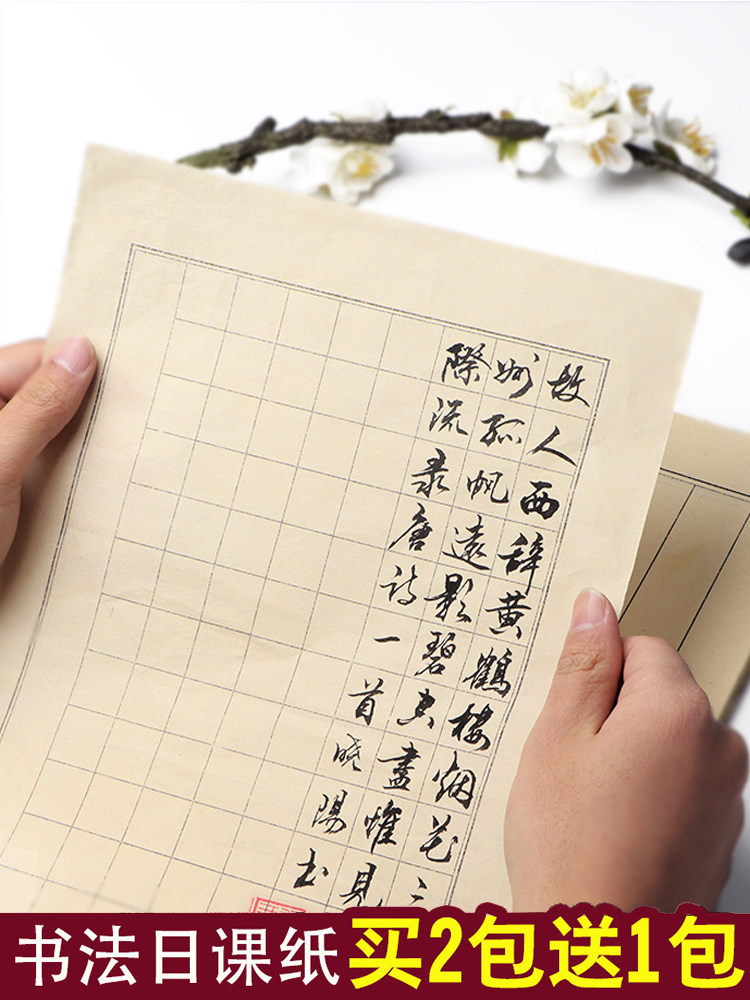 故人西辞黄鶴楼烟花三
州孤帆遠影碧空盡惟見
際流录唐诗一首晓陽书
书法日课纸 买2包送1包